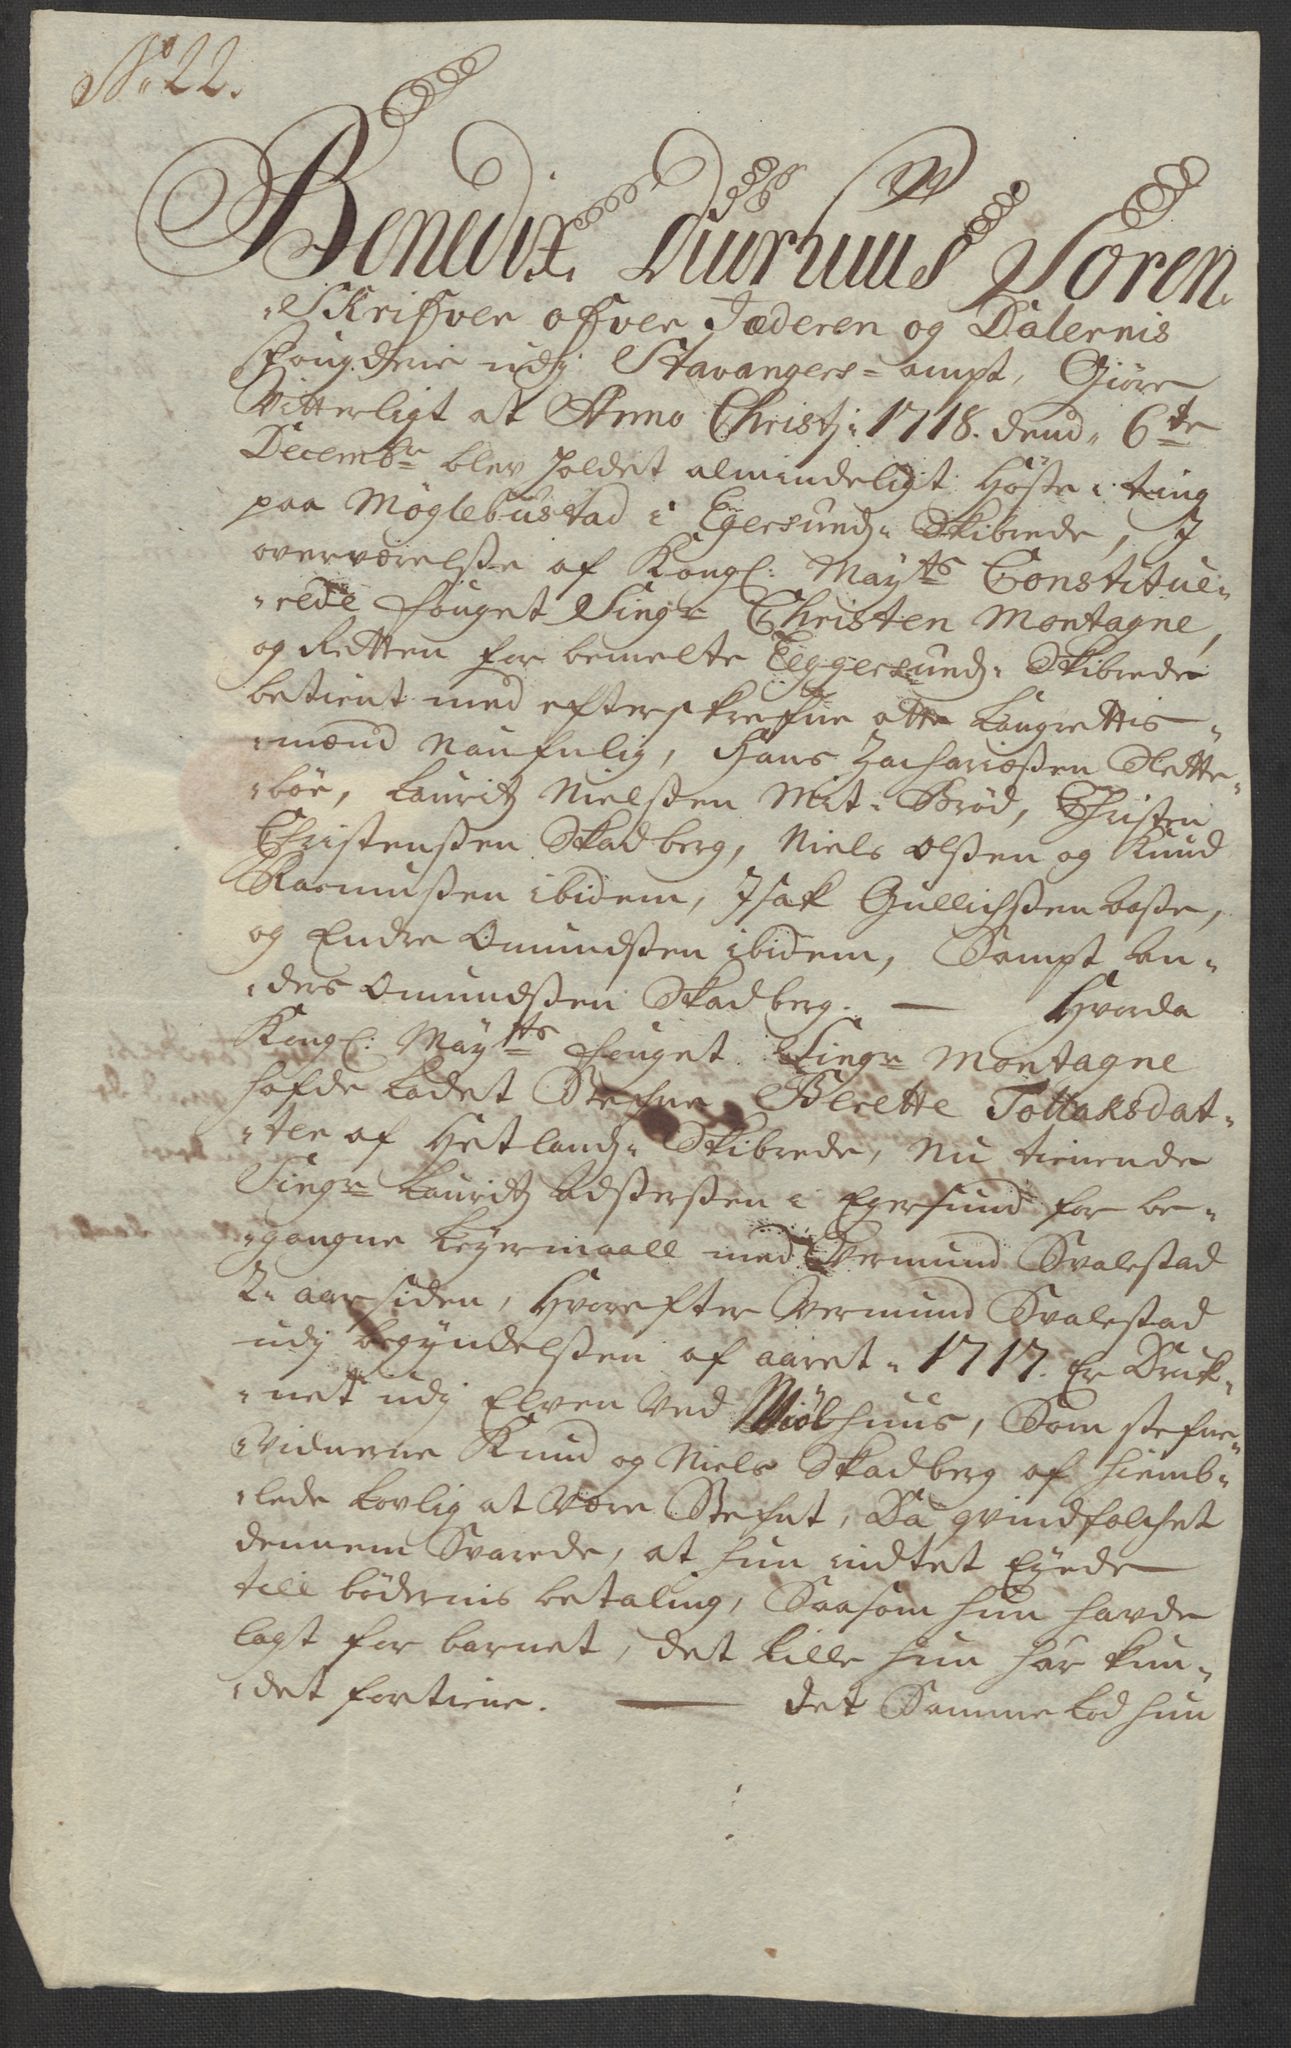 No 22.
Benedix Duurhuus Soren
-Skrifver ofver Jæderen og Dalernis
Fougderie udj Stavangers-ampt, Giøre
Vitterligt at Anno Christj: 1718. dend. 6te
Decembr blev holdet almindeligt Høste-ting
paa Møglebustad i Egersund: Skibrede, J
overværelße af Kongl: Mayts Constitue-
-rede fouget Singr Christen Montagne,
og Retten for bemelte Eggersund: Skibrede
betient med efterskrefne otte Laugrettis-
-mænd Naufnlig, Hans Zachariæßen Slette-
-bøe, Lauritz Nielßen Mit-Brød, Christen
Christenßen Skadberg, Niels Olßen og Knud
Rasmußen ibidem, Isak Gullichßen
og Endre Omundßen ibidem, Sampt An-
-ders Omundßen Skadberg. — Hvorda
Kongl: Mayts fouget Singr Montagne
hafde Ladet Stefne Berette Tollaksdat-
-ter af Hetland: Skibrede, nu tienende
Singr Lauritz Adßerßen i Egersund for be-
-gangne Leyermaall med Vermund Svalestad
2. aar siden, Hvorefter Vermund Svalestad
udj begyndelßen af aaret. 1717. Er Druk-
-net udj Elven ved Miølhuus, Som stefne-
-vidnerne Knud og Niels Skadberg af hiemb-
-lede Lovlig at være Stefnt, Da qvindfolchet
dennem Svarede, at hun indtet Eyede
till bødernis betaling, Saasom hun havde
lagt for barnet, det lille hun har kun-
-det fortiene. — det Samme Lod hun